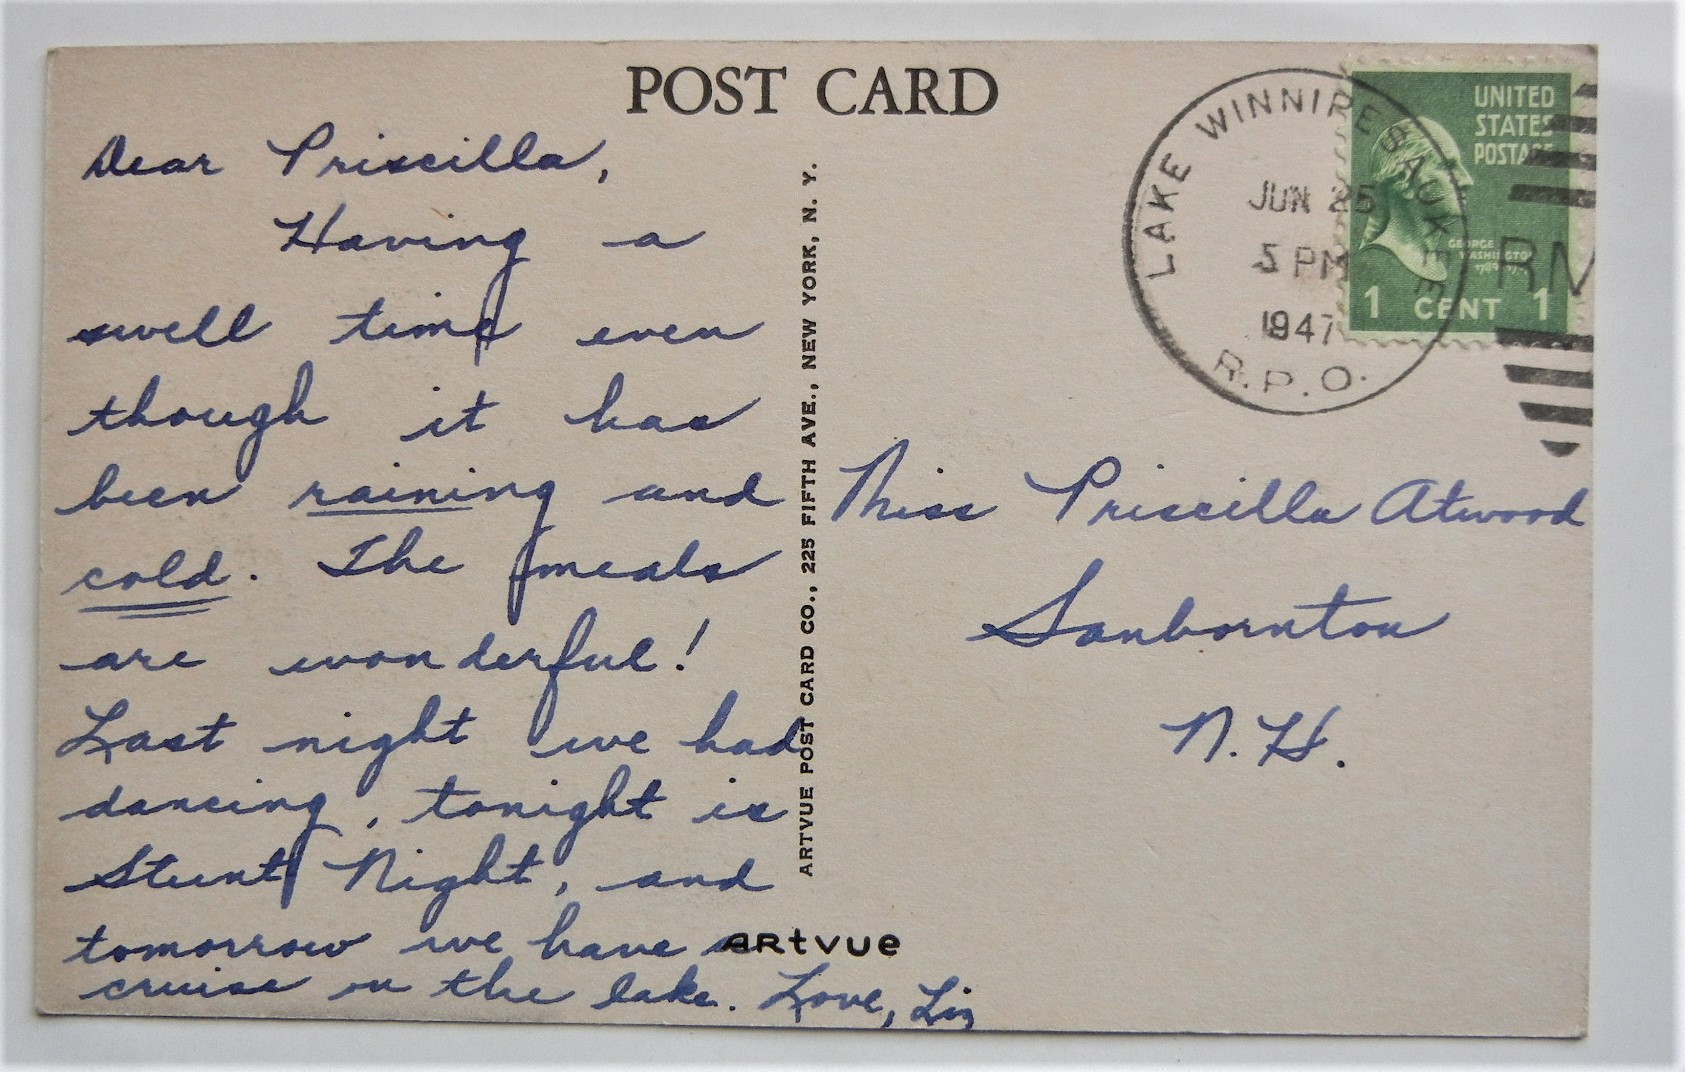 POST CARD
Dear Priscilla,
Having a
swell time even
though it has
been raining and
cold. The meals
are wonderful!
Last night we had
dancing, tonight is
Stunt Night, and
tomorrow we have a
cruise on the lake. Love, Liz
ARTVUE POST CARD CO., 225 FIFTH AVE., NEW YORK, N. Y.
ARtvue
LAKE WINNIPESAUKEE
JUN 25
5 PM
1947
R.P.O.
UNITED
STATES
POSTAGE
GEORGE
WASHINGTON
1 CENT 1
RM
Miss Priscilla Atwood
Sanbornton
N.H.